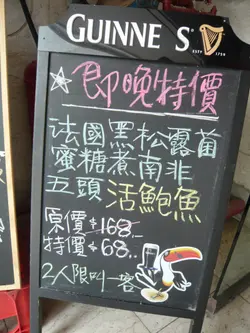 GUINNE S
ESTD 1759
☆即晚特價
法國黑松露菌
蜜糖煮南非
五頭活鮑魚
原價$168.-
特價$68..
2人限叫一客